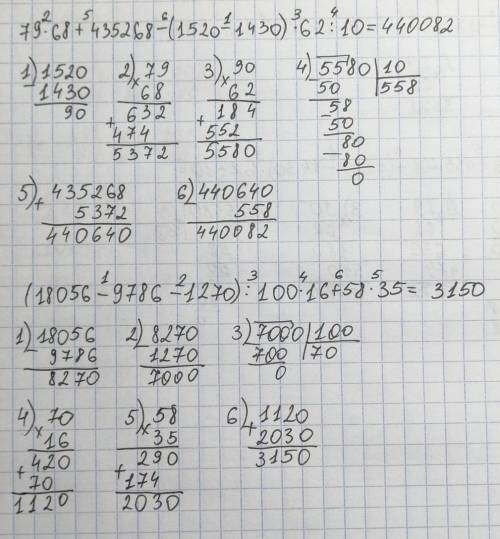 79·68+435268-(1520-1430)·62:10=440082
2 5 6 1 3 4
1) 1520 2) 79 3) 90 4) 5580 | 10
- 1430 × 68 × 62 - 50 558
90 632 + 184 58
+ 474 552 - 50
5372 5580 80
- 80
0
5) 435268 6) 440640
+ 5372 - 558
440640 440082
1 2 3 4 6 5
(18056-9786-1270):100·16+58·35= 3150
1) 18056 2) 8270 3) 7000 | 100
- 9786 - 1270 - 700 70
8270 7000 0
4) 70 5) 58 6) 1120
× 16 × 35 + 2030
+ 420 + 290 3150
70 174
1120 2030